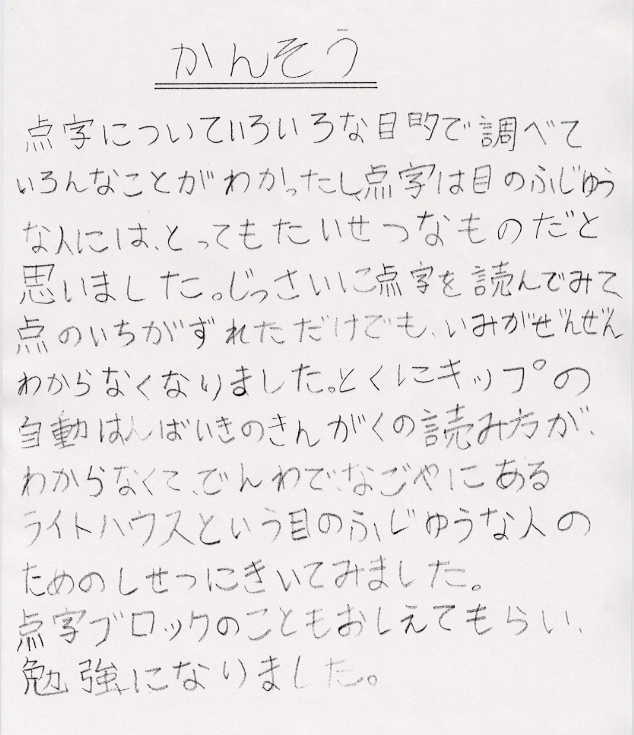 かんそう
点字についていろいろな目的で調べて
いろんなことがわかったし、点字は目のふじゆう
な人には、とってもたいせつなものだと
思いました。じっさいに点字を読んでみて、
点のいちがずれただけでも、いみがぜんぜん
わからなくなりました。とくにキップの
自動はんばいきのきんがくの読み方が、
わからなくて、でんわで、なごやにある
ライトハウスという目のふじゆうな人の
ためのしせつにきいてみました。
点字ブロックのこともおしえてもらい、
勉強になりました。